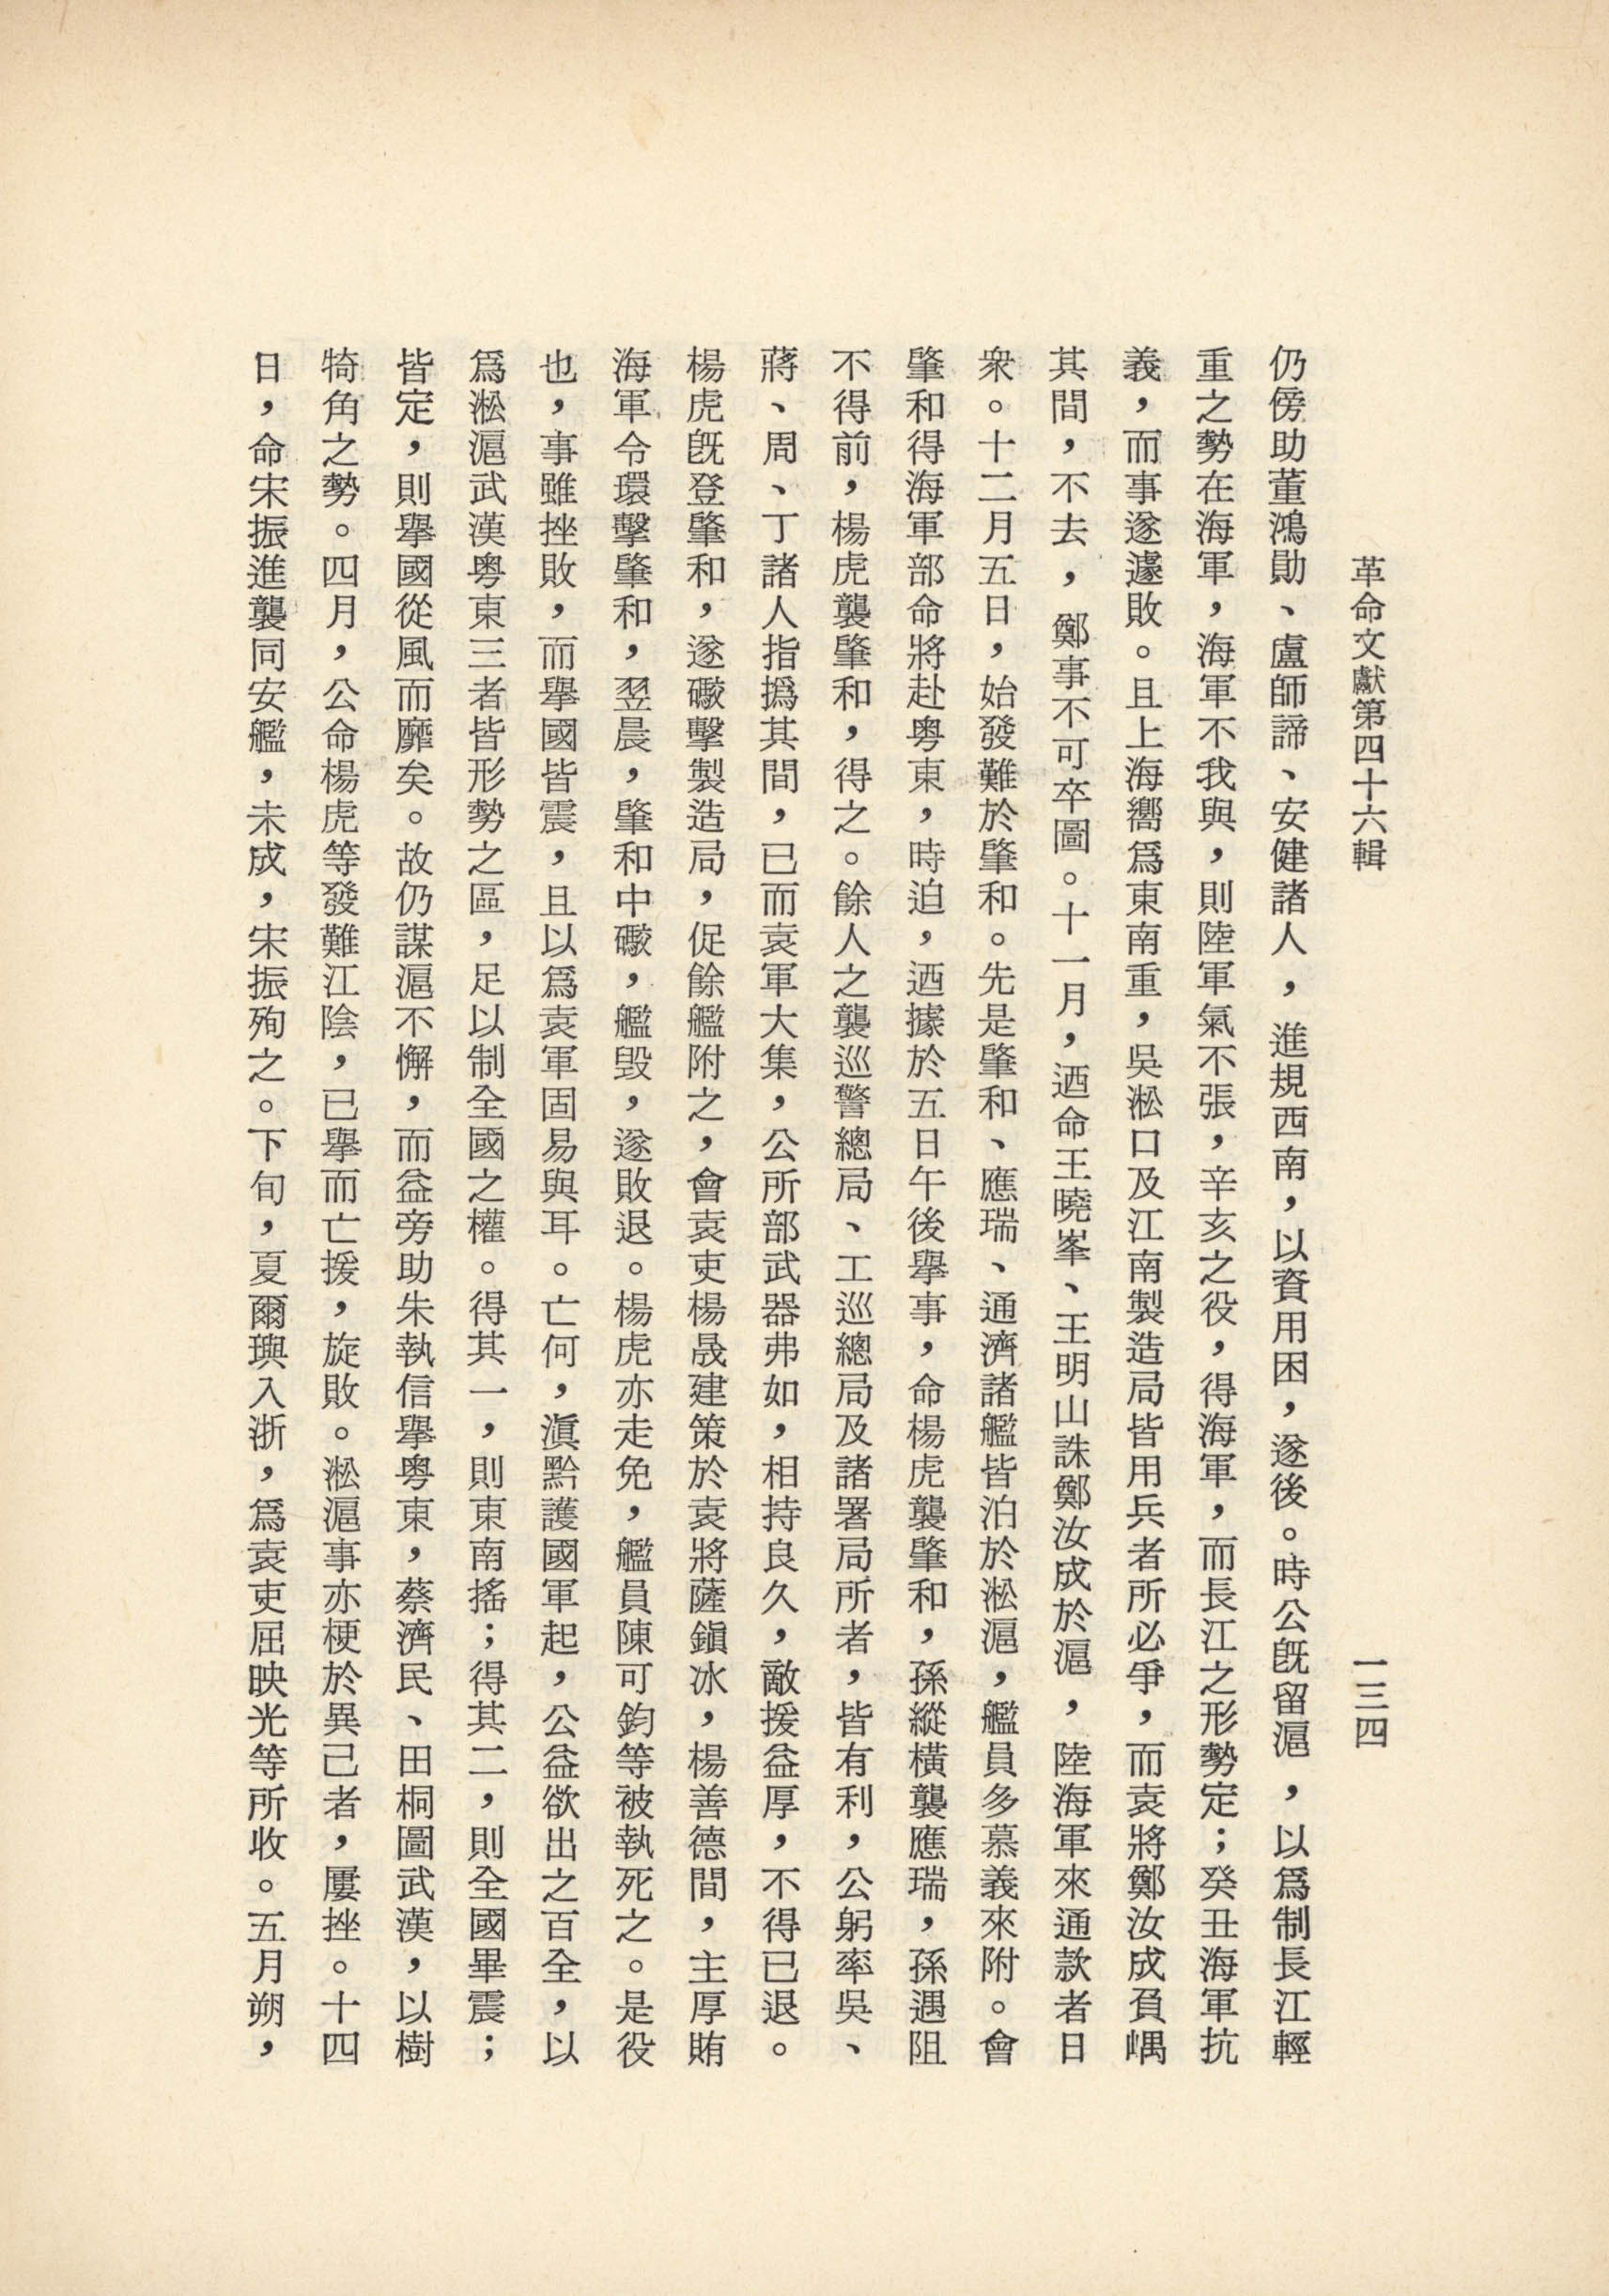 革命文獻第四十六輯
一三四
仍傍助董鴻勛、盧師諦、安健諸人，進規西南，以資用困，遂後。時公旣留滬，以爲制長江輕
重之勢在海軍，海軍不我與，則陸軍氣不張，辛亥之役，得海軍，而長江之形勢定；癸丑海軍抗
義，而事遂遽敗。且上海嚮爲東南重，吳淞口及江南製造局皆用兵者所必爭，而袁將鄭汝成負嵎
其間，不去，鄭事不可卒圖。十一月，迺命王曉峯、王明山誅鄭汝成於滬，陸海軍來通款者日
衆。十二月五日，始發難於肇和。先是肇和、應瑞、通濟諸艦皆泊於淞滬，艦員多慕義來附。會
肇和得海軍部命將赴粤東，時迫，迺據於五日午後舉事，命楊虎襲肇和，孫縱橫襲應瑞，孫遇阻
不得前，楊虎襲肇和，得之。餘人之襲巡警總局、工巡總局及諸署局所者，皆有利，公躬率吳、
蔣、周、丁諸人指撝其間，已而袁軍大集，公所部武器弗如，相持良久，敵援益厚，不得已退。
楊虎旣登肇和，遂礮擊製造局，促餘艦附之，會袁吏楊晟建策於袁將薩鎭冰，楊善德間，主厚賄
海軍令環擊肇和，翌晨，肇和中礮，艦毀，遂敗退。楊虎亦走免，艦員陳可鈞等被執死之。是役
也，事雖挫敗，而舉國皆震，且以爲袁軍固易與耳。亡何，滇黔護國軍起，公益欲出之百全，以
爲淞滬武漢粤東三者皆形勢之區，足以制全國之權。得其一，則東南搖；得其二，則全國畢震；
皆定，則舉國從風而靡矣。故仍謀滬不懈，而益旁助朱執信舉粤東，蔡濟民、田桐圖武漢，以樹
犄角之勢。四月，公命楊虎等發難江陰，已舉而亡援，旋敗。淞滬事亦梗於異己者，屢挫。十四
日，命宋振進襲同安艦，未成，宋振殉之。下旬，夏爾璵入浙，爲袁吏屈映光等所收。五月朔，